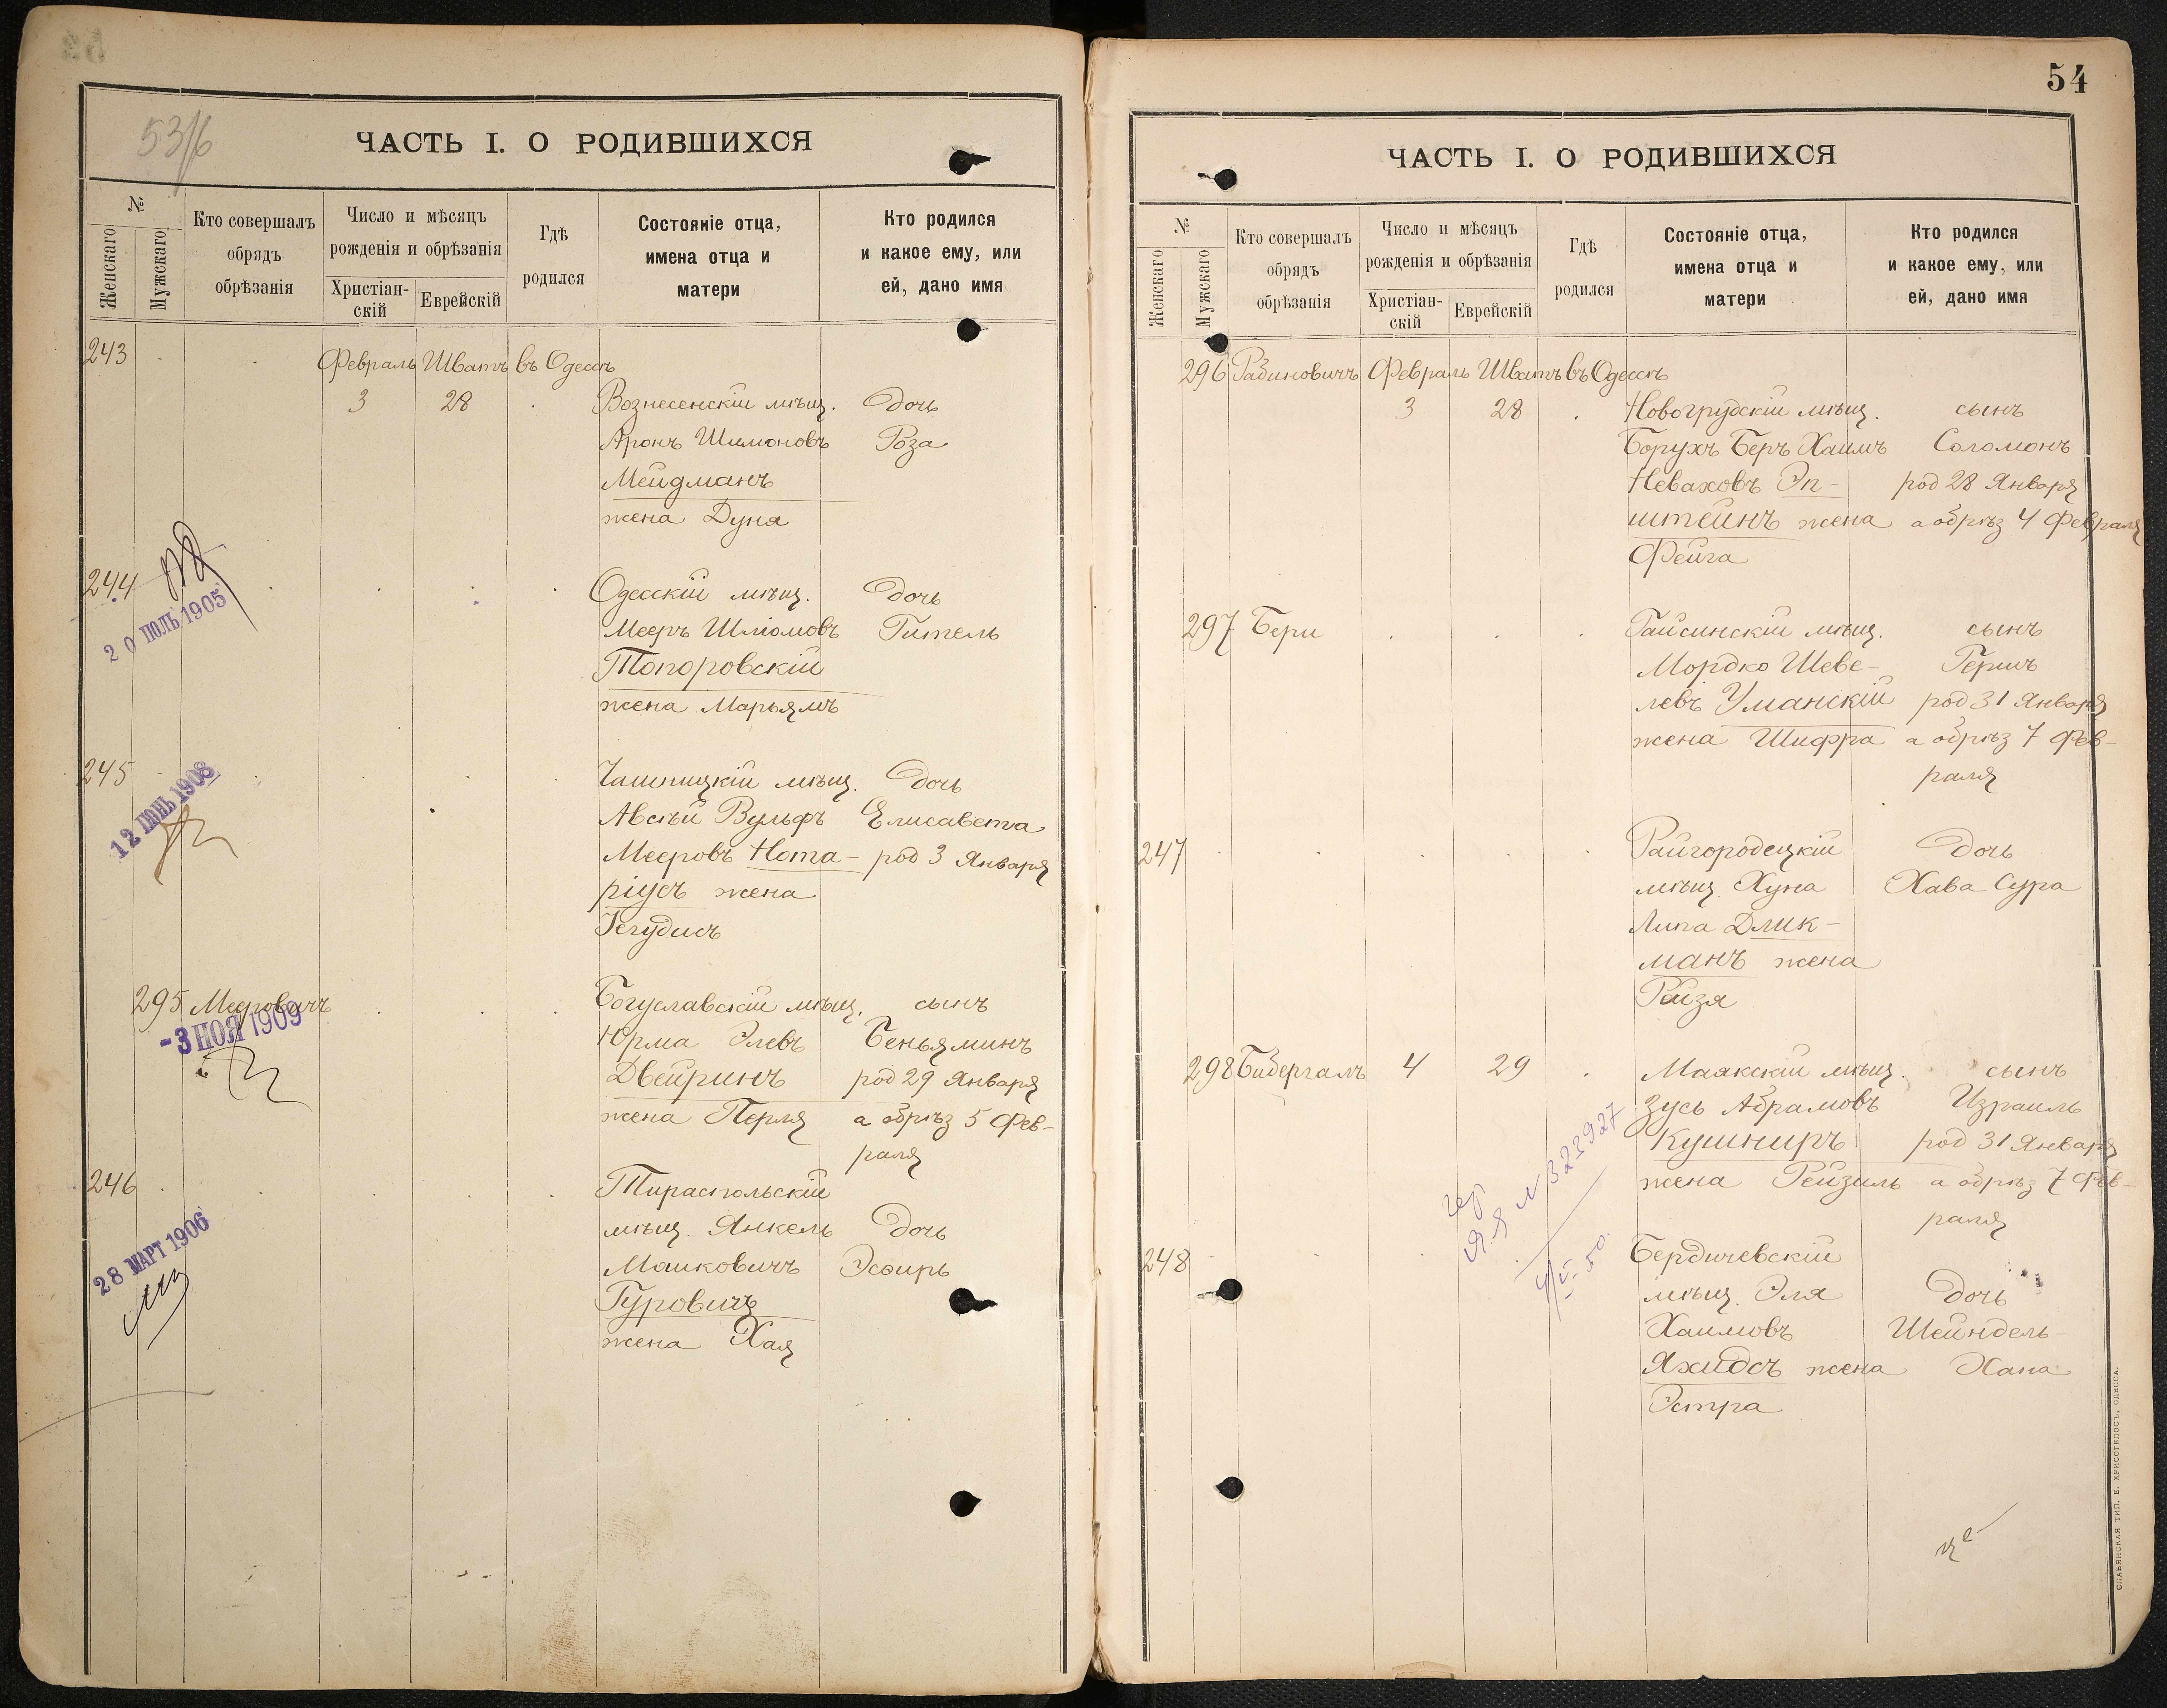 53/6
ЧАСТЬ I. О РОДИВШИХСЯ
№
Женскаго
Мужскаго
Кто совершалъ
обрядъ
обрѣзанія
Число и мѣсяцъ
рожденія и обрѣзанія
Христіан-
скій
Еврейскій
Гдѣ
родился
Состояніе отца,
имена отца и
матери
Кто родился
и какое ему, или
ей, дано имя
243
Февраль Шватъ въ Одессѣ
3 28 Вознесенскій мѣщ. Дочь
Аронъ Шимоновъ Роза
Мейдманъ
жена Дуня
244 Одесскій мѣщ. Дочь
20 ІЮЛЬ 1905
Мееръ Шлiомовъ Гитель
Топоровскій
жена Марьямъ
245 Чашницкій мѣщ. Дочь
12 ІЮНЬ 1908
Авсѣй Вульфъ Елисавета
Мееровъ Нота- род 3 Января
ріусъ жена
Іегудисъ
295 Мееровичъ Богуславскій мѣщ. сынъ
-3 НОЯ 1909
Юрма Элевъ Беньяминъ
Двейринъ род 29 Января
жена Перля а обрѣз 5 Фев-
раля
246 Тираспольскій
28 МАРТ 1906
мѣщ. Янкель Дочь
Маиковичъ Эсѳирь
Гуровичъ
жена Хая
54
ЧАСТЬ I. О РОДИВШИХСЯ
№
Женскаго
Мужскаго
Кто совершалъ
обрядъ
обрѣзанія
Число и мѣсяцъ
рожденія и обрѣзанія
Христіан-
скій
Еврейскій
Гдѣ
родился
Состояніе отца,
имена отца и
матери
Кто родился
и какое ему, или
ей, дано имя
296 Рабиновичъ Февраль Шватъ въ Одессѣ
3 28 Новогрудскій мѣщ. сынъ
Борухъ Беръ Хаимъ Соломонъ
Неваховъ Эп- род 28 Января
штейнъ жена а обрѣз 4 Февраля
Фейга
297 Бери Гайсинскій мѣщ. сынъ
Мордко Шеве- Гершъ
левъ Уманскій род 31 Января
жена Шифра а обрѣз 7 Фев-
раля
247 Райгородецкій Дочь
мѣщ Хуна Хава Сура
Липа Длик-
манъ жена
Рейзя
298 Бибергалъ 4 29 Маякскій мѣщ. сынъ
Зусь Абрамовъ Израиль
Кушниръ род 31 Января
жена Рейзиль а обрѣз 7 Фев-
раля
№ 323927
248 Бердичевскій
мѣщ. Эля Дочь
Хаимовъ Шейндель-
Яхидсъ жена Хана
Эстра
СЛАВЯНСКАЯ ТИП. Е. ХРИСОГЕЛОСЪ, ОДЕССА.